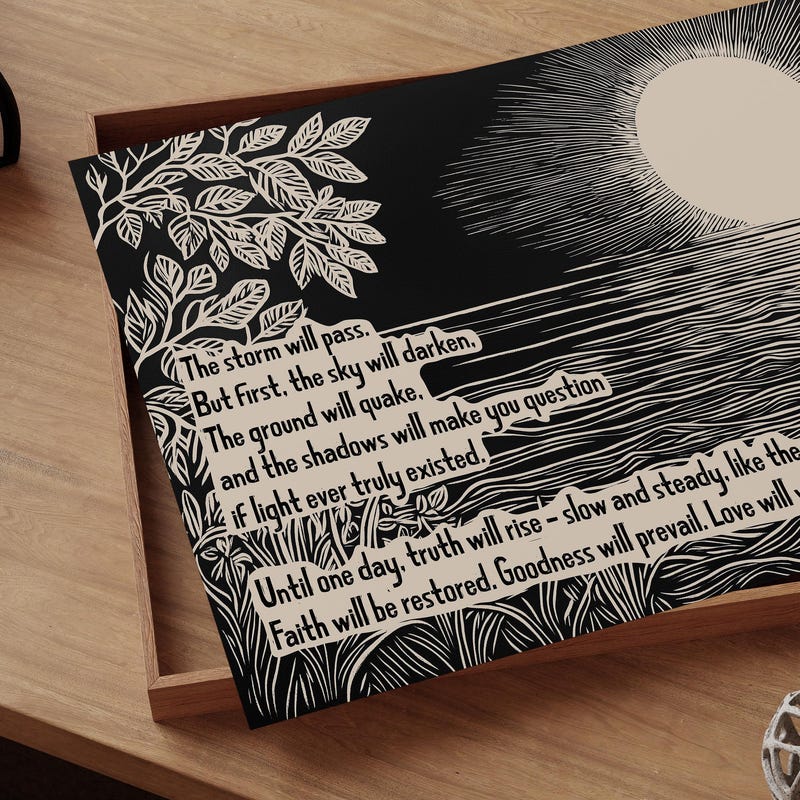 The storm will pass.
But first, the sky will darken,
The ground will quake,
and the shadows will make you question
if light ever truly existed.
Until one day, truth will rise – slow and steady, like the
Faith will be restored. Goodness will prevail. Love will